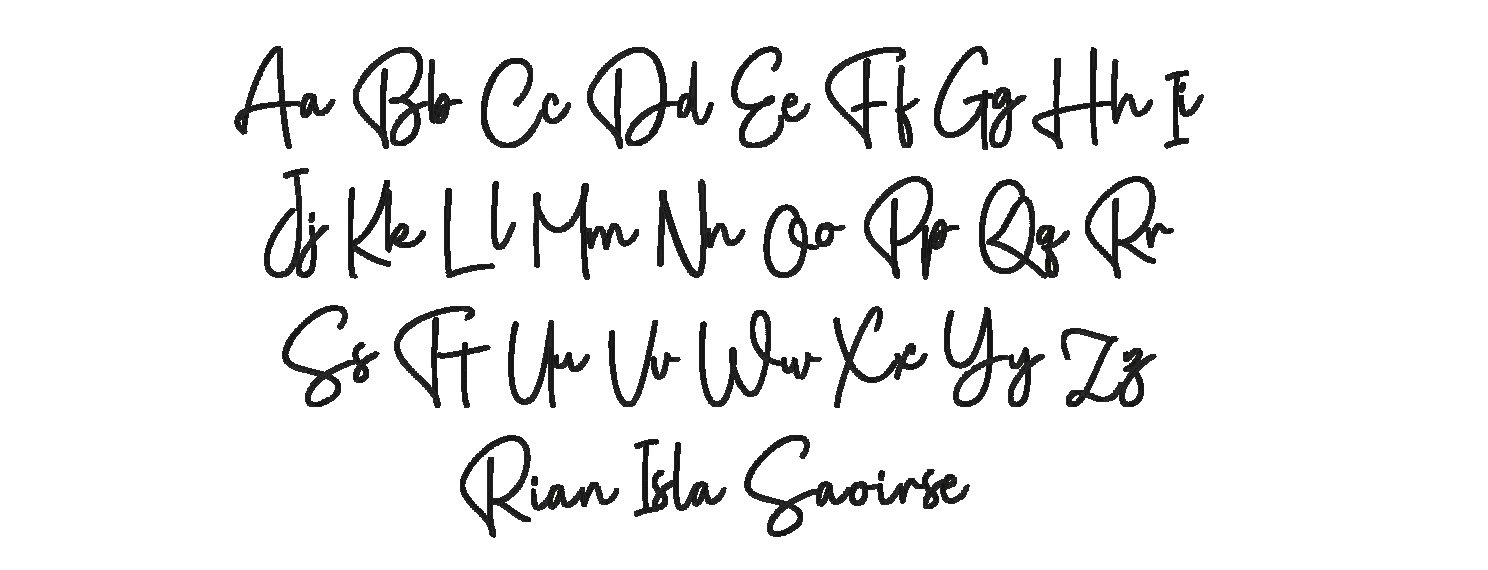 Aa Bb Cc Dd Ee Ff Gg Hh Ii
Jj Kk Ll Mm Nn Oo Pp Qq Rr
Ss Tt Uu Vv Ww Xx Yy Zz
Rian Isla Saoirse